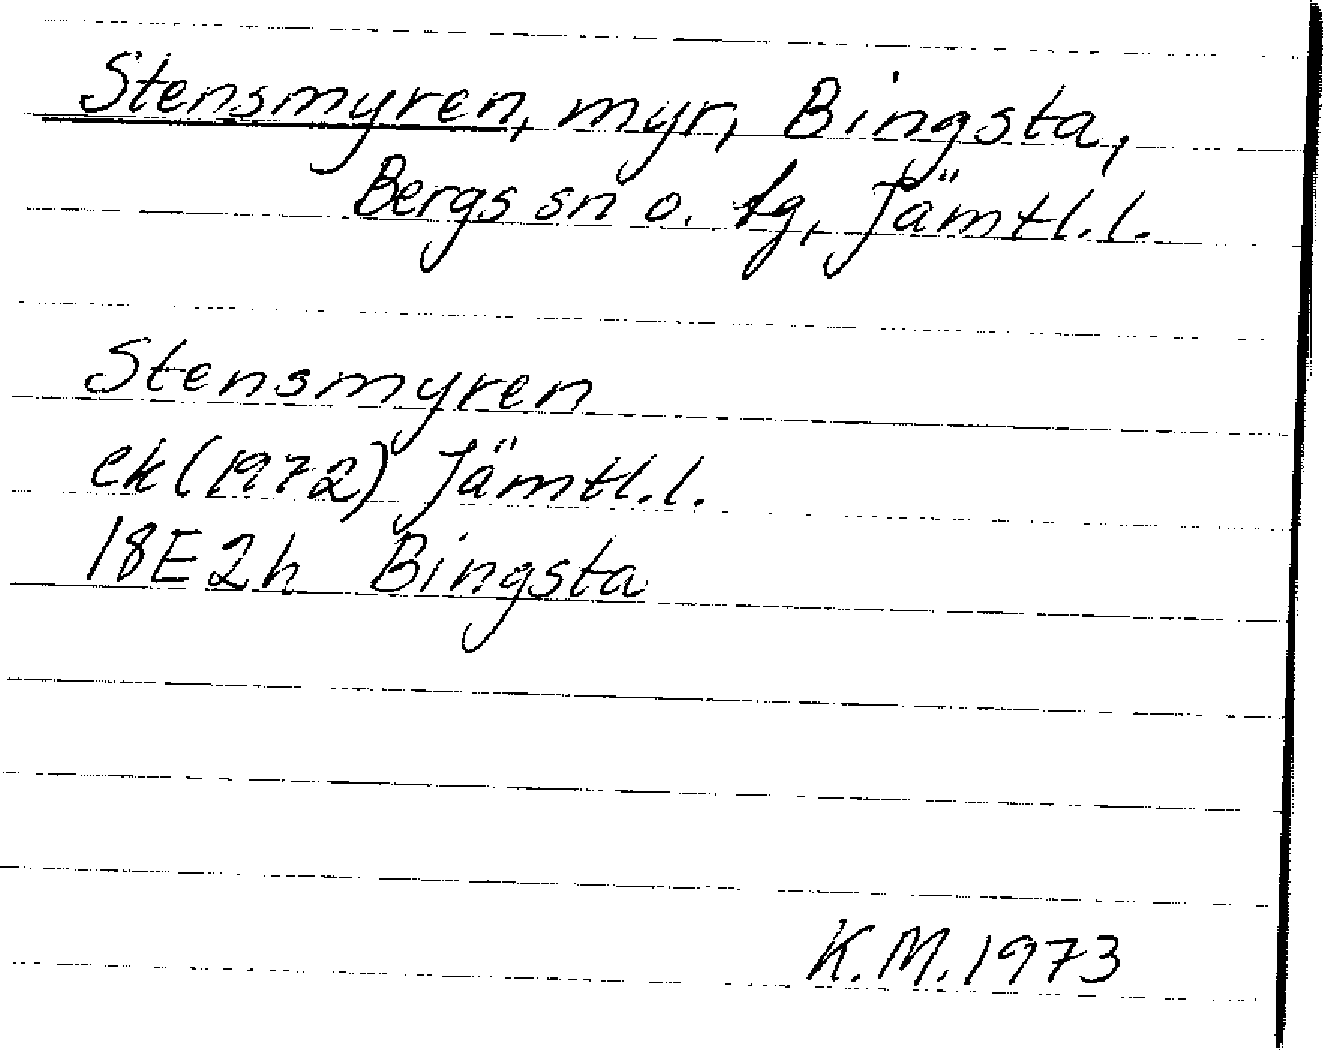 Stensmyren, myr, Bingsta,
Bergs sn o. tg, Jämtl. l.
Stensmyren
ek (1972) Jämtl. l.
18E2h Bingsta
K.M. 1973